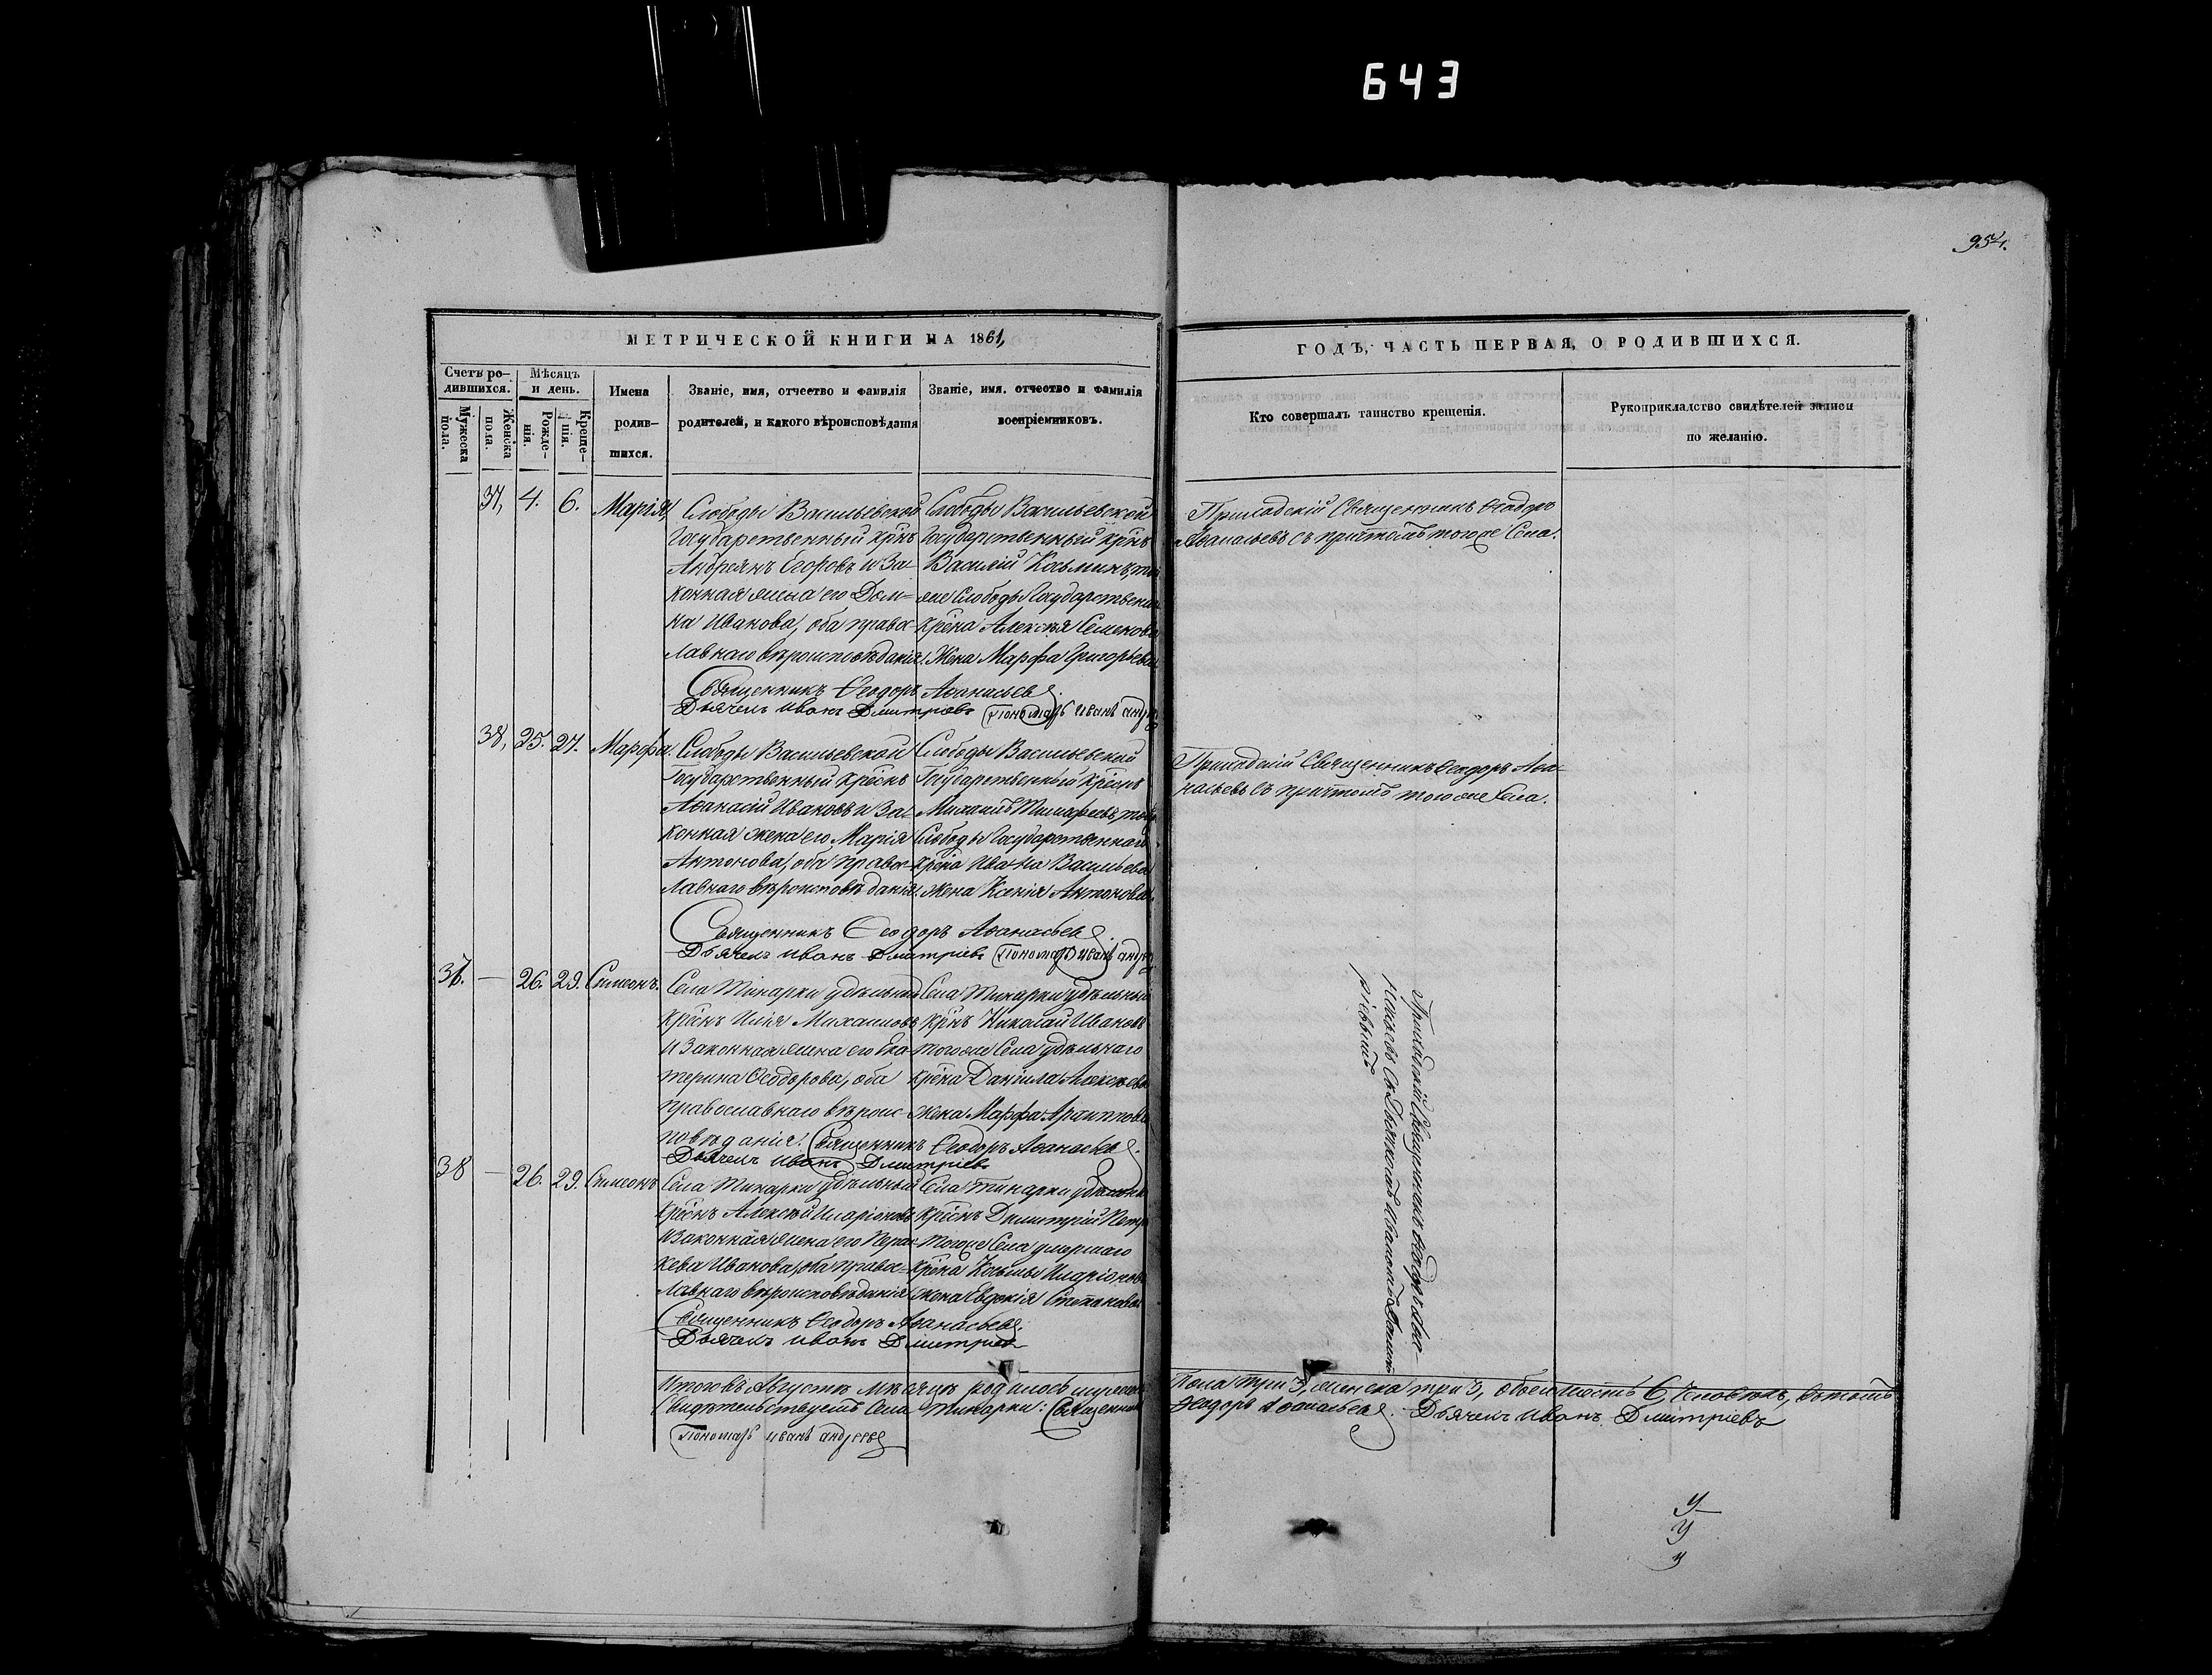 643
954.
МЕТРИЧЕСКОЙ КНИГИ НА 1861,
ГОДЪ, ЧАСТЬ ПЕРВАЯ, О РОДИВШИХСЯ.
Счетъ ро-
дившихся.
Мужеска
пола.
Женска
пола.
Мѣсяцъ
и день.
Рожде-
нія.
Креще-
нія.
Имена
родив-
шихся.
Званіе, имя, отчество и фамилія
родителей, и какого вѣроисповѣданія
Званіе, имя, отчество и фамилія
воспріемниковъ.
Кто совершалъ таинство крещенія.
Рукоприкладство свидѣтелей записи
по желанію.
37, 4. 6. Марія,
Слободы Васильевской
Государственный крнъ
Андреянъ Егоровъ и За-
конная жена его Дом-
на Иванова, оба право-
лавнаго вѣроисповѣданія.
Слободы Васильевской
Государственный крнъ
Василій Косьминъ, той
же Слободы Государственна
крена Алексѣя Семенова
жена Марфа Григорьева
Приходскій Священникъ Ѳеодоръ
Аѳанасьевъ съ причтомъ тогоже Села.
Священникъ Ѳеодоръ Аѳанасьевъ.
Дьячекъ Иванъ Дмитріевъ Пономарь Иванъ
38, 25. 27. Марфа.
Слободы Васильевской
Государственный крестнъ
Аѳанасій Ивановъ и За-
конная жена его Марія
Антонова, оба право-
лавнаго вѣроисповѣданія.
Слободы Васильевской
Государственный крестнъ
Михаилъ Тимофеевъ, той
Слободы Государственнаго
крена Ивана Васильева
жена Ксенія Антонова.
Приходскій Священникъ Ѳеодоръ Аѳа-
насьевъ съ причтомъ тогоже Села.
Священникъ Ѳеодоръ Аѳанасьевъ.
Дьячекъ Иванъ Дмитріевъ Пономарь Иванъ
37. — 26. 29. Симеонъ.
Села Тинарки удѣльный
крестнъ Илія Михаиловъ
и Законная жена его Ека-
терина Ѳеодорова, оба
православнаго вѣроис-
повѣданія.
Села Тинарки удѣльный
крнъ Николай Ивановъ
тогоже Села удѣльнаго
крена Даніила Алексѣева
жена Марфа Архиппова
Приходскій Священникъ Ѳеодоръ Аѳа-
насьевъ съ Дьячкомъ Иваномъ Дмит-
ріевымъ
Священникъ Ѳеодоръ Аѳанасьевъ.
Дьячекъ Иванъ Дмитріевъ
38 — 26. 29. Симеонъ
Села Тинарки удѣльный
крестнъ Алексѣй Иларіоновъ
и Законная жена его Парас-
кева Иванова, оба право-
лавнаго вѣроисповѣданія
Села Тинарки
крестнъ Димитрій
тогоже Села умершаго
крена Косьмы Иларіонова
жена Евдокія Степанова
Священникъ Ѳеодоръ Аѳанасьевъ.
Дьячекъ Иванъ Дмитріевъ
Итого въ Августѣ мѣсяцѣ родилось мужеска Пола три 3, женска три 3, обоего шесть 6, человѣкъ, въ томъ
Свидѣтельствуемъ Села Тинарки: Священникъ Ѳеодоръ Аѳанасьевъ. Дьячекъ Иванъ Дмитріевъ
Пономарь Иванъ Андреевъ